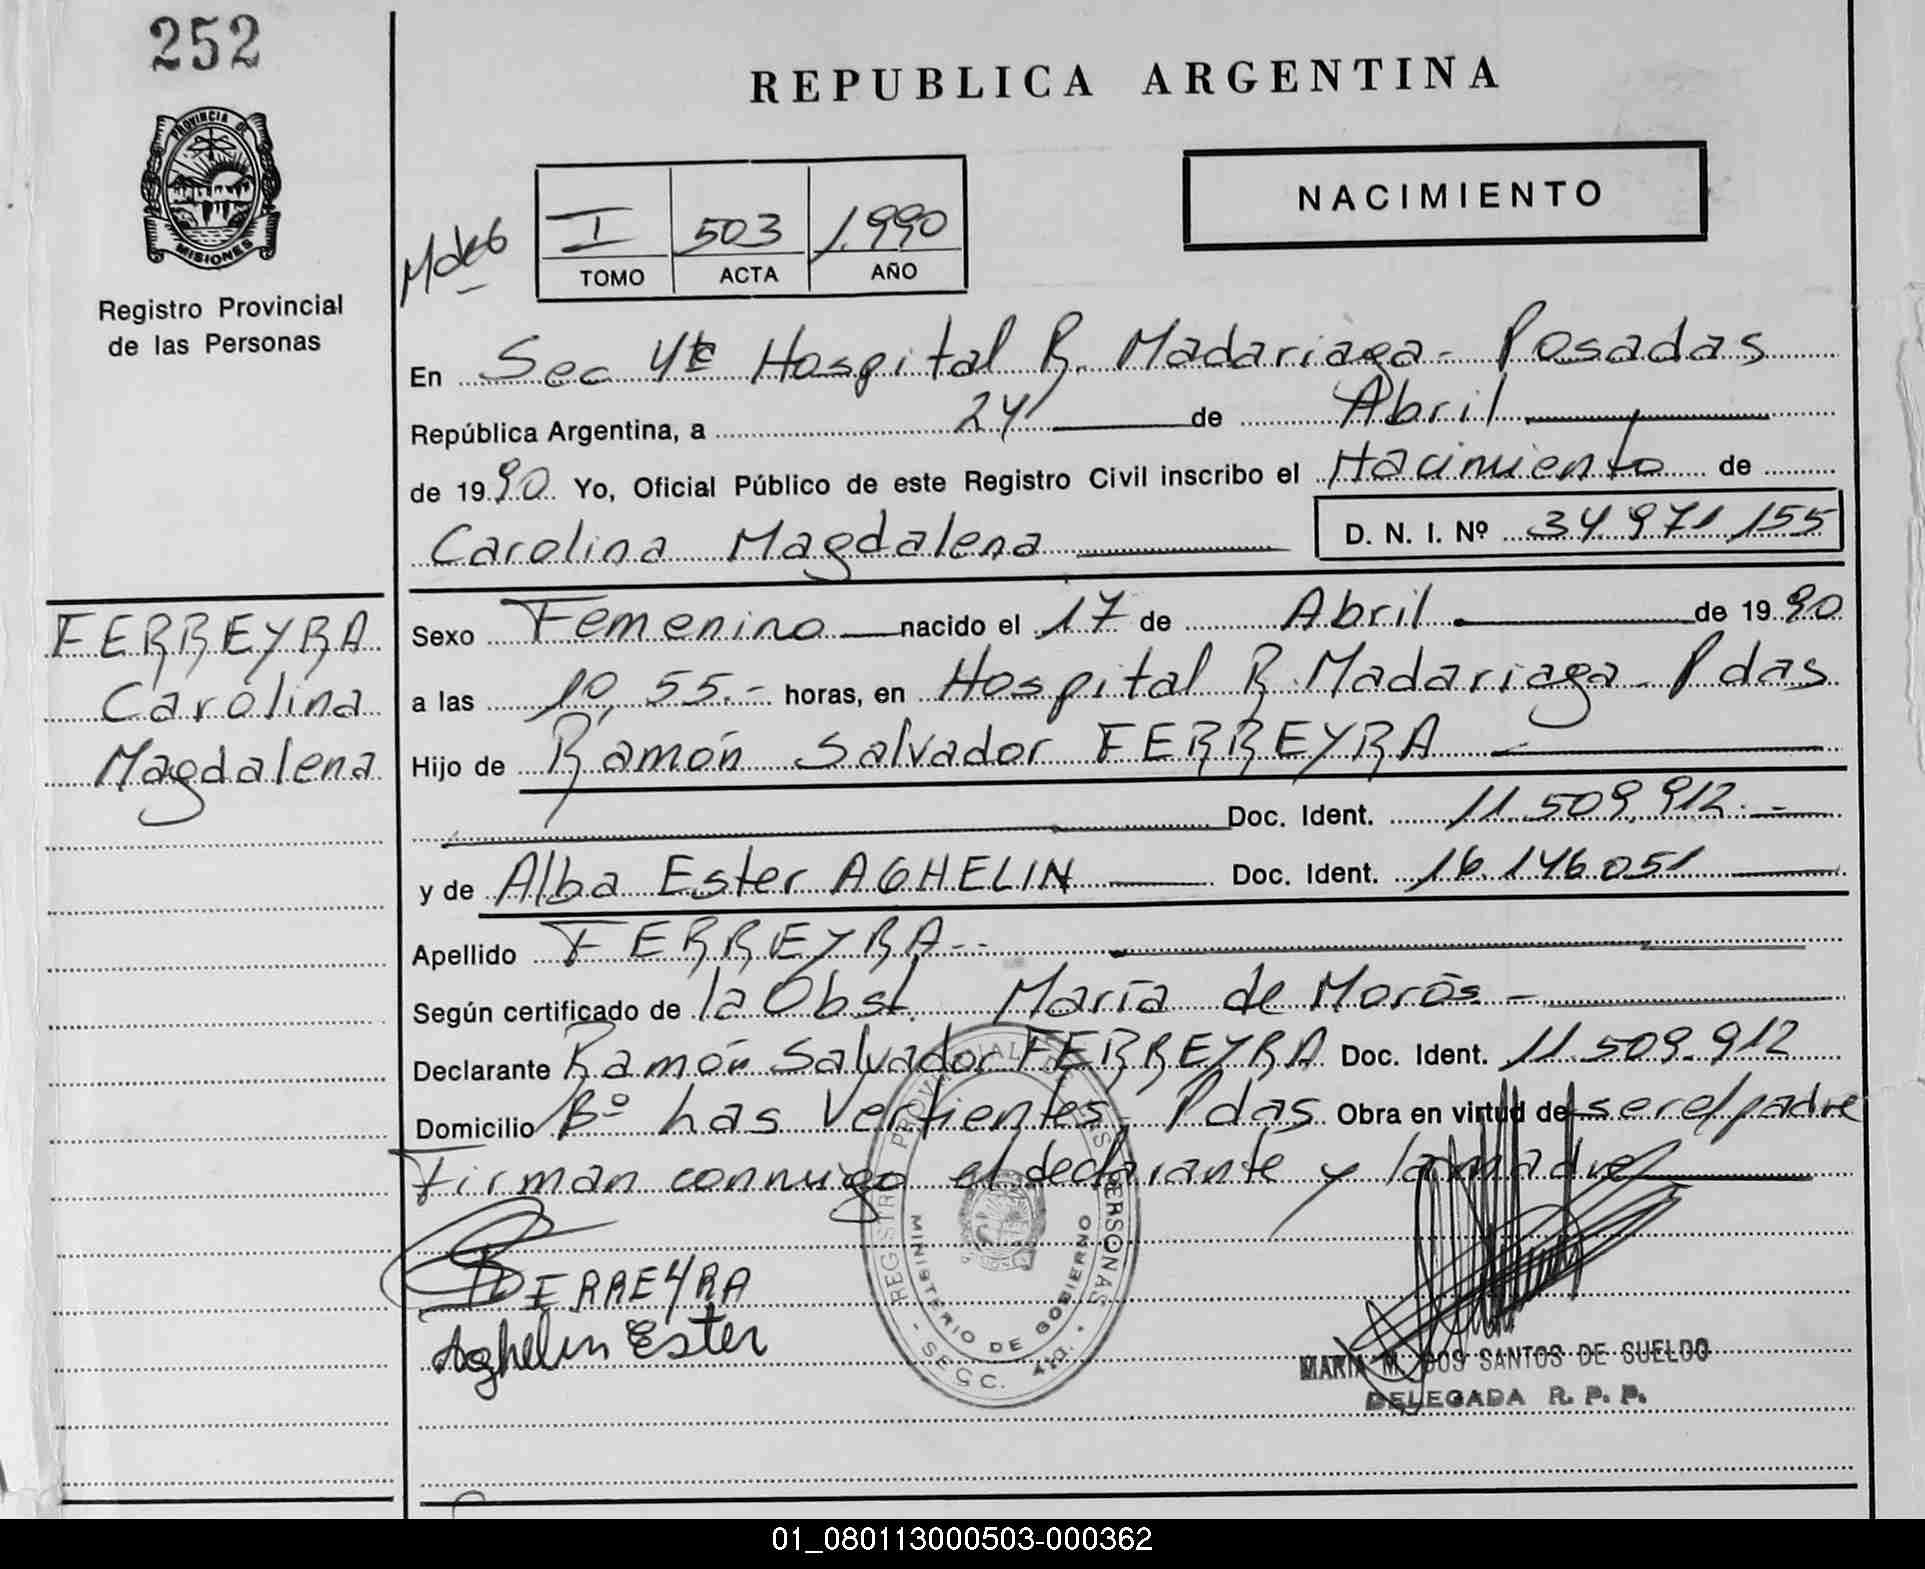 252
REPUBLICA ARGENTINA
PROVINCIA DE
MISIONES
Registro Provincial
de las Personas
NACIMIENTO
I 503 1.990
TOMO ACTA AÑO
En Sec 4ta Hospital R. Madariaga - Posadas
República Argentina, a 24 de Abril
de 1990 Yo, Oficial Público de este Registro Civil inscribo el Nacimiento de
Carolina Magdalena D. N. I. Nº 34.971.155
FERREYRA
Carolina
Magdalena
Sexo Femenino nacido el 17 de Abril de 1990
a las 10,55.- horas, en Hospital R. Madariaga - Pdas
Hijo de Ramón Salvador FERREYRA
Doc. Ident. 11.509.912.-
y de Alba Ester AGHELIN Doc. Ident. 16.146.051
Apellido FERREYRA--
Según certificado de la Obst. María de Morós -
Declarante Ramón Salvador FERREYRA Doc. Ident. 11.509.912
Domicilio Bº Las Vertientes, Pdas Obra en virtud de ser el padre
Firman conmigo el declarante y la madre
FERREYRA
Aghelin Ester
REGISTRO PROVINCIAL DE LAS PERSONAS
MINISTERIO DE GOBIERNO
- SECC. 4ta. -
MARIA M. DOS SANTOS DE SUELDO
DELEGADA R. P. P.
01_080113000503-000362